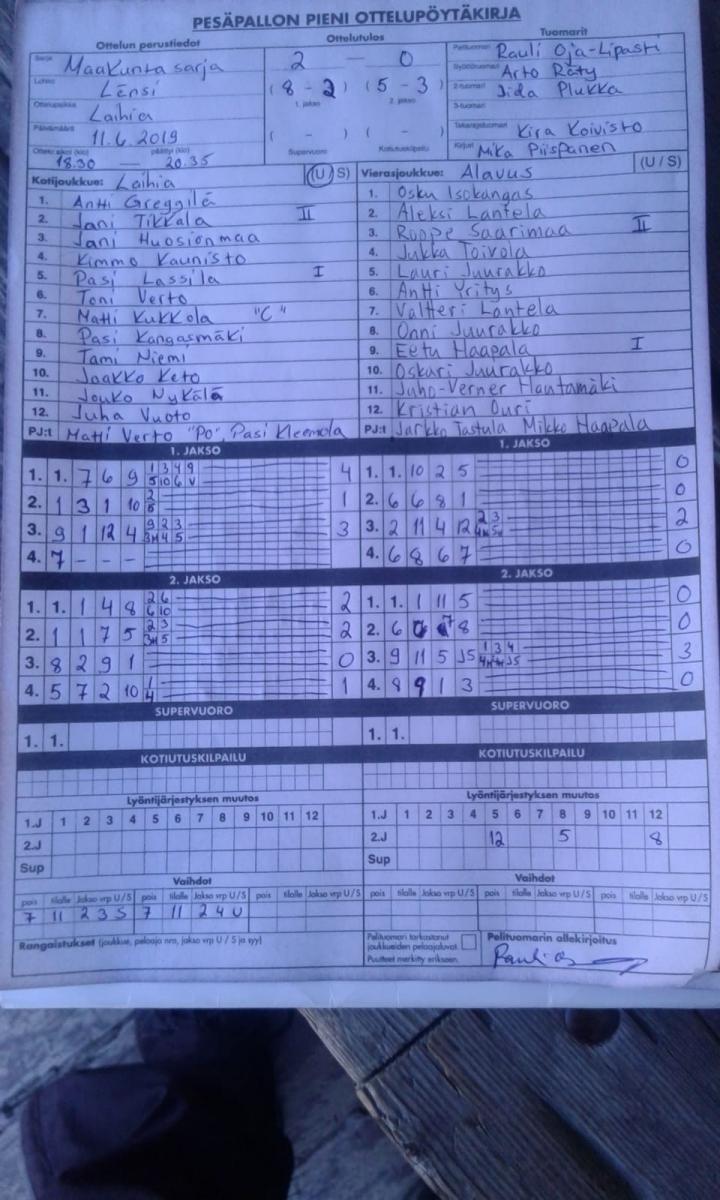 PESÄPALLON PIENI OTTELUPÖYTÄKIRJA
Ottelun perustiedot
Sarja Maakuntasarja
Lohko Länsi
Ottelupaikka Laihia
Päivämäärä 11.6.2019
Ottelu alkoi (klo) päättyi (klo)
18.30 — 20.35
Ottelutulos
2 — 0
(8 - 2) (5 - 3)
1. jakso 2. jakso
( - ) ( - )
Supervuoro Kotiutuskilpailu
Tuomarit
Pelituomari Rauli Oja-Lipasti
Syöttötuomari Arto Räty
2-tuomari Iida Plukka
3-tuomari
Takarajatuomari Kira Koivisto
Kirjuri Mika Piispanen
Kotijoukkue: Laihia (U/S)
1. Antti Greggilä
2. Jani Tikkala II
3. Jani Huosionmaa
4. Kimmo Kaunisto
5. Pasi Lassila I
6. Toni Verto
7. Matti Kukkola "C"
8. Pasi Kangasmäki
9. Tami Niemi
10. Jaakko Keto
11. Jouko Nykälä
12. Juha Vuoto
PJ:t Matti Verto "PO", Pasi Kleemola
Vierasjoukkue: Alavus (U/S)
1. Osku Isokangas
2. Aleksi Lantela
3. Roope Saarimaa II
4. Jukka Toivola
5. Lauri Juurakko
6. Antti Yritys
7. Valtteri Lantela
8. Onni Juurakko
9. Eetu Haapala I
10. Oskari Juurakko
11. Juho-Verner Hautamäki
12. Kristian Ouri
PJ:t Jarkko Tastula Mikko Haapala
1. JAKSO
1. 1. 7 6 9 1 3 4 9 4
5 10 6 V
2. 1 3 1 10 2 1
8
3. 9 1 12 4 9 2 3 3
3H 4 5
4. 7 - - -
1. JAKSO
1. 1. 10 2 5 0
2. 6 6 8 1 0
3. 2 11 4 12 2 3 2
4. 6 8 6 7 0
2. JAKSO
1. 1. 1 4 8 2 6 2
6 10
2. 1 1 7 5 2 3 2
3H 5
3. 8 2 9 1 0
4. 5 7 2 10 1 1
4
2. JAKSO
1. 1. 1 11 5 0
2. 6 8 0
3. 9 11 5 J5 1 3 4 3
4. 8 9 1 3 0
SUPERVUORO
1. 1.
SUPERVUORO
1. 1.
KOTIUTUSKILPAILU
KOTIUTUSKILPAILU
Lyöntijärjestyksen muutos
1.J 1 2 3 4 5 6 7 8 9 10 11 12
2.J
Sup
Lyöntijärjestyksen muutos
1.J 1 2 3 4 5 6 7 8 9 10 11 12
2.J 12 5 8
Sup
Vaihdot
pois tilalle Jakso vrp U/S pois tilalle Jakso vrp U/S pois tilalle Jakso vrp U/S
7 11 2 3 S 7 11 2 4 U
Vaihdot
pois tilalle Jakso vrp U/S pois tilalle Jakso vrp U/S pois tilalle Jakso vrp U/S
Rangaistukset (joukkue, pelaaja nro, jakso vrp U / S ja syy)
Pelituomari tarkastanut
joukkueiden pelaajaluvat.
Puutteet merkitty erikseen.
Pelituomarin allekirjoitus